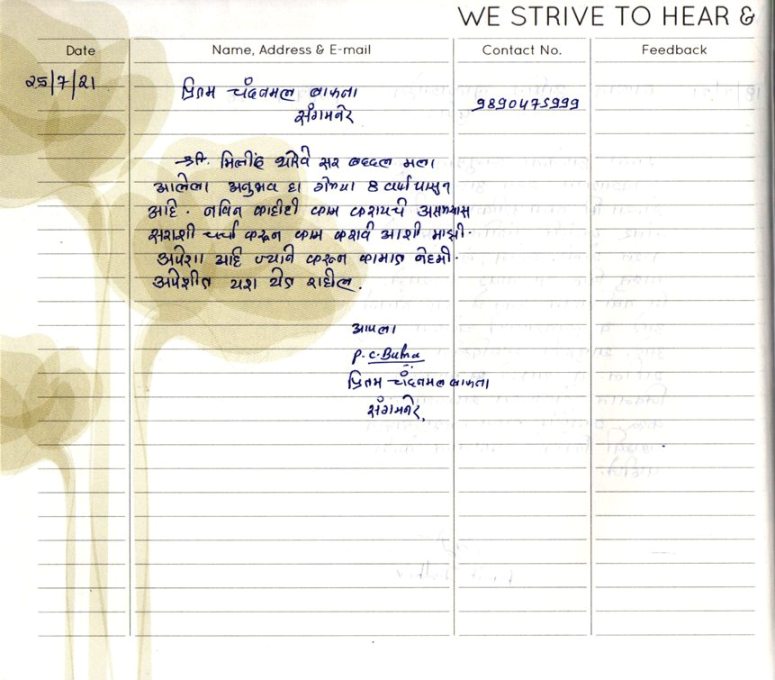 WE STRIVE TO HEAR &
Date Name, Address & E-mail Contact No. Feedback
25/7/21 प्रितम चंदनमल बाफना 9890475999
संगमनेर
श्री. मिलींद थोरवे सर बद्दल मला
आलेला अनुभव हा गेल्या 8 वर्षा पासुन
आहे. नविन काहीही काम करायचे असल्यास
सराशी चर्चा करून काम करावे आशी माझी.
अपेशा आहे ज्याने करून कामात नेहमी.
अपेशीत यश येत राहील.
आपला
P. C. Bafna
प्रितम चंदनमल बाफना
संगमनेर,